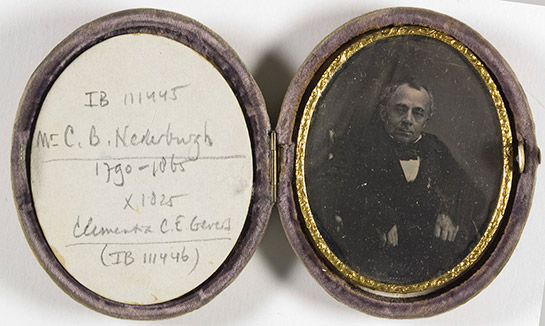 IB 111445
Mr C. B. Nederburgh
1790-1865
x 1825
Clementia C.E. Gevers
(IB 111446)